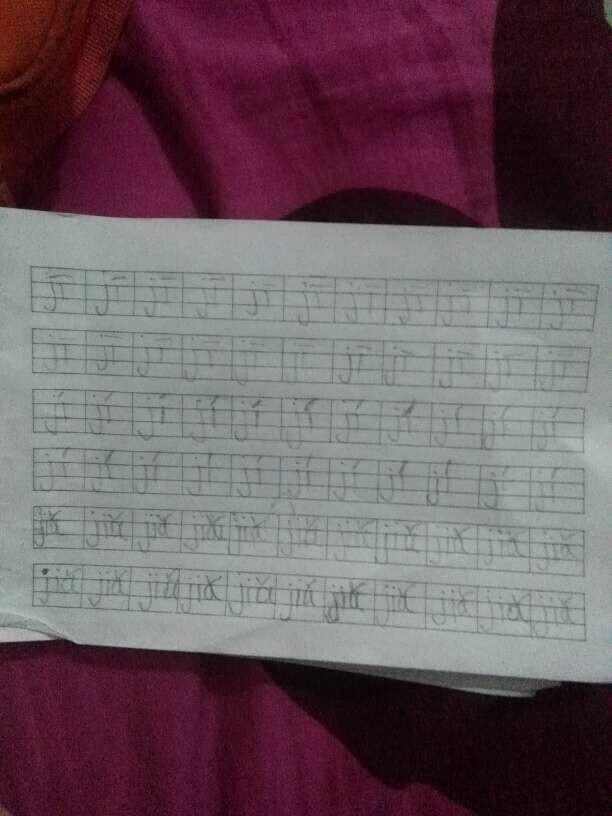 jī jī jī jī jī jī jī jī jī jī jī
jī jī jī jī jī jī jī jī jī jī jī
jí jí jí jí jí jí jí jí jí jí jí
jí jí jí jí jí jí jí jí jí jí jí
jiǎ jiǎ jiǎ jiǎ jiǎ jiǎ jiǎ jiǎ jiǎ jiǎ jiǎ
jiǎ jiǎ jiǎ jiǎ jiǎ jiǎ jiǎ jiǎ jiǎ jiǎ jiǎ